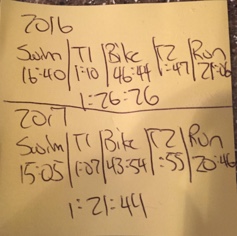 2016
Swim | T1 | Bike | T2 | Run
16:40 | 1:10 | 46:44 | :47 | 21:06
1:26:26
2017
Swim | T1 | Bike | T2 | Run
15:05 | 1:07 | 43:54 | :55 | 20:46
1:21:44